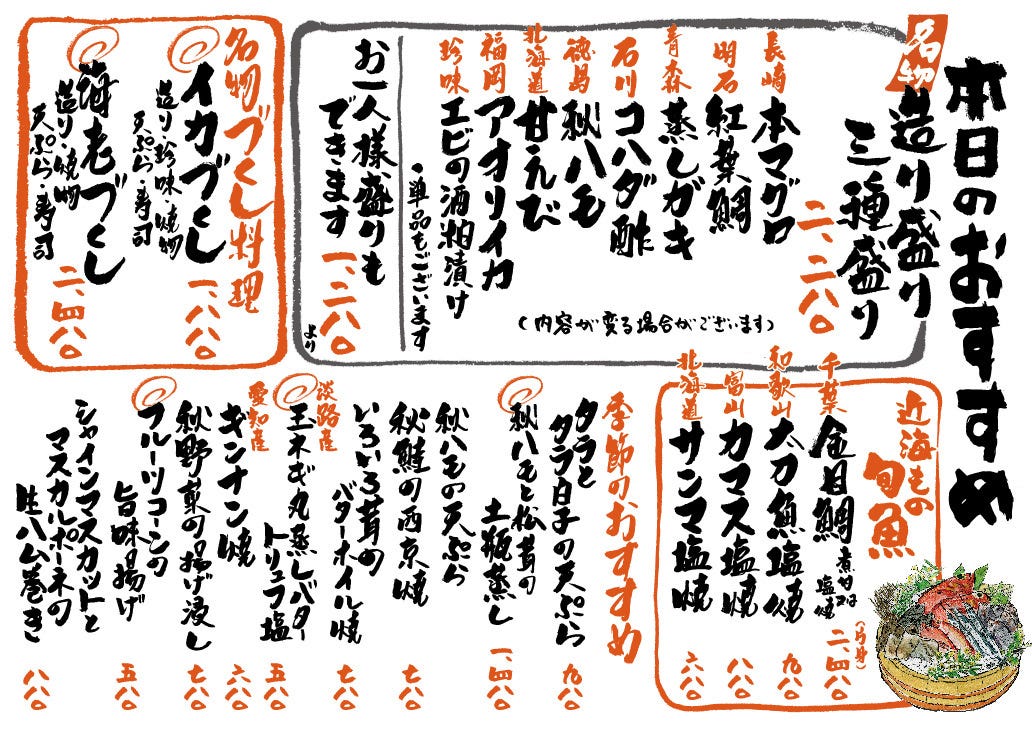 本日のおすすめ
名物
造り盛り
三種盛り
二、二八〇
長崎
本マグロ
明石
紅葉鯛
青森
蒸しガキ
石川
コハダ酢
徳島
秋ハモ
北海道
甘えび
福岡
アオリイカ
珍味
エビの酒粕漬け
(内容が変る場合がございます)
・単品もございます
お一人様盛りも
できます
一、二八〇
より
名物づくし料理
イカづくし
造り・珍味・焼物
天ぷら・寿司
一、八八〇
海老づくし
造り・焼物
天ぷら・寿司
二、四八〇
近海もの
旬魚
千葉
金目鯛
煮付け
塩焼
(片身)
二、四八〇
和歌山
太刀魚塩焼
九八〇
富山
カマス塩焼
八八〇
北海道
サンマ塩焼
六八〇
季節のおすすめ
タラと
タラ白子の天ぷら
九八〇
秋ハモと松茸の
土瓶蒸し
一、四八〇
秋ハモの天ぷら
秋鮭の西京焼
七八〇
いろいろ茸の
バターホイル焼
七八〇
淡路産
玉ネギ丸蒸しバター
トリュフ塩
五八〇
愛知産
ギンナン焼
六八〇
秋野菜の揚げ浸し
七八〇
フルーツコーンの
旨味揚げ
五八〇
シャインマスカットと
マスカルポーネの
生ハム巻き
八八〇